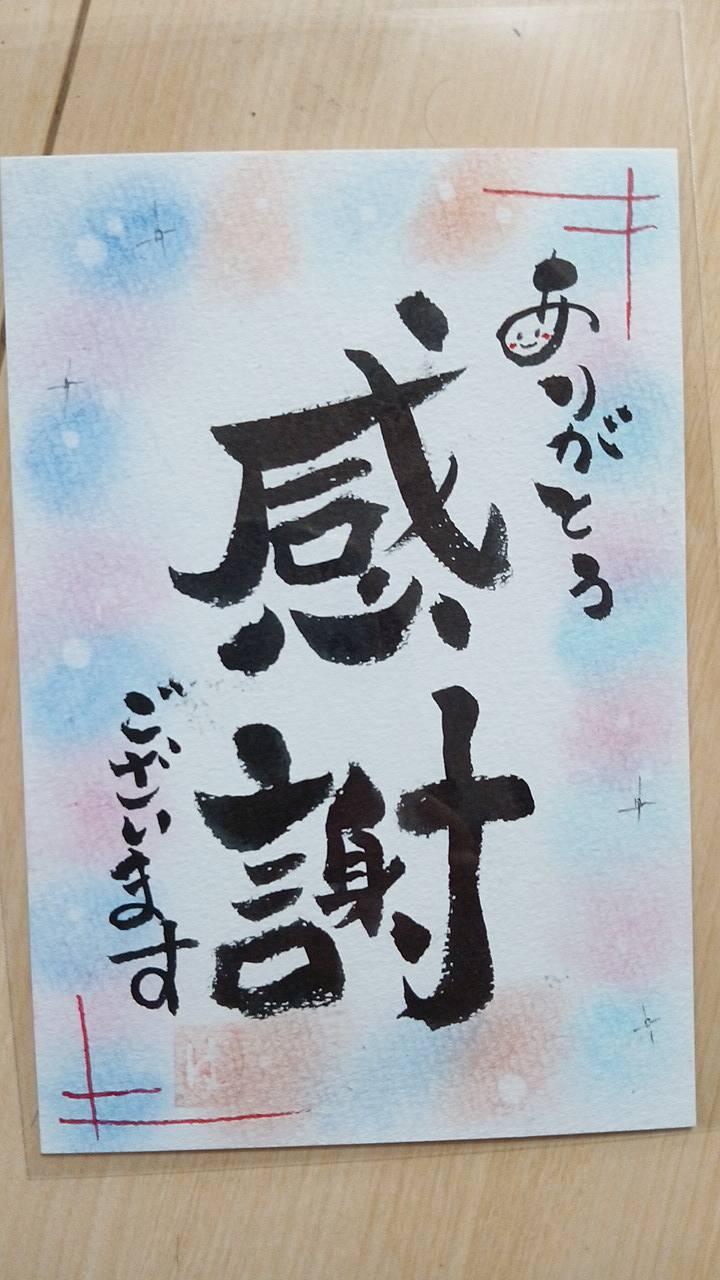 ありがとう
感謝
ございます